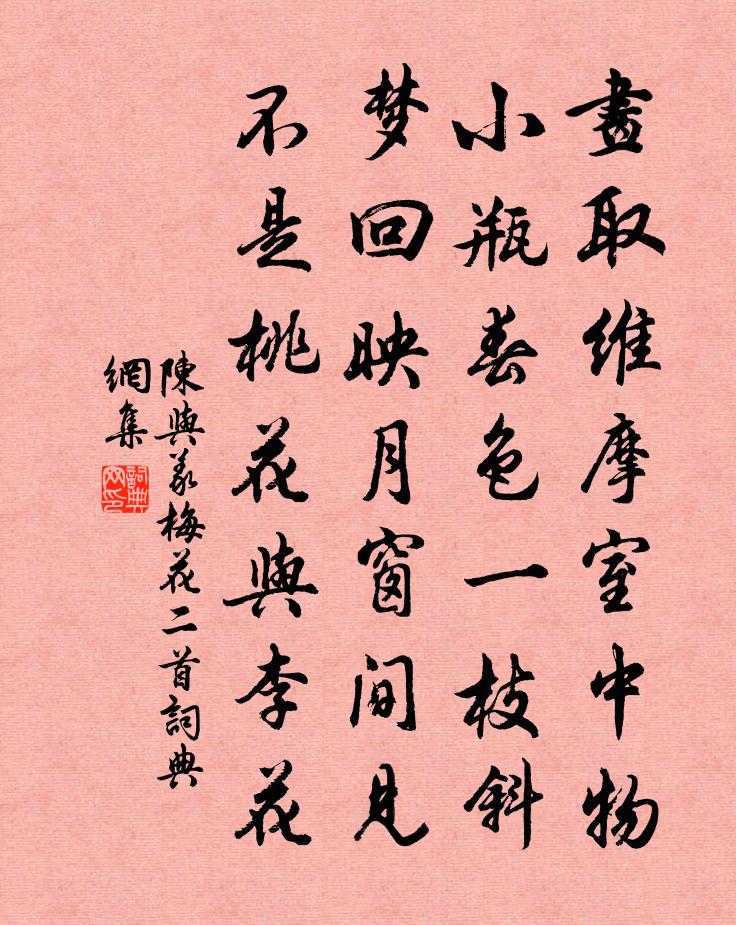 畫取維摩室中物
小瓶春色一枝斜
梦回映月窗間見
不是桃花與李花
陳與義梅花二首詞典
網集
詞典
网印